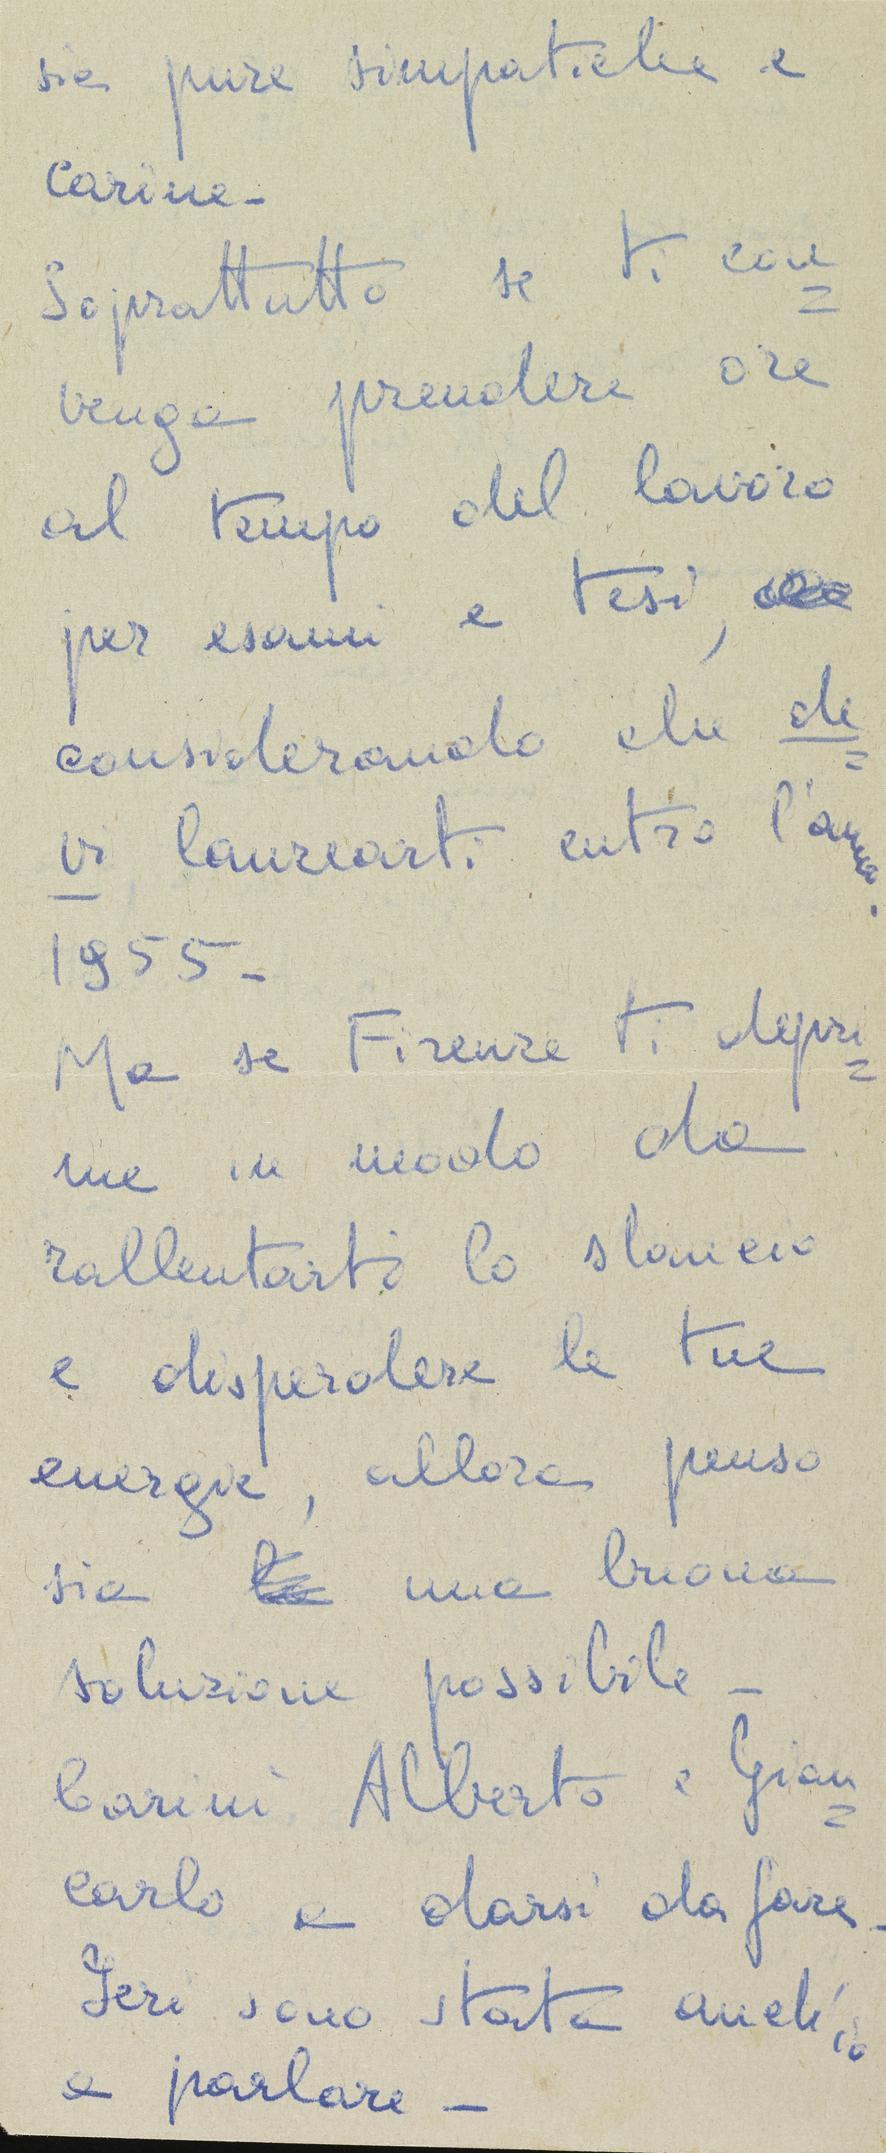 sia pure simpatiche e
carine-
Soprattutto se ti con=
venga prendere ore
al tempo del lavoro
per esami e tesi,
considerando che de=
vi laurearti entro l'anno
1955-
Ma se Firenze ti depri=
me in modo da
rallentarti lo slancio
e disperdere le tue
energie, allora penso
sia una buona
soluzione possibile-
Carini Alberto e Gian=
carlo a darsi da fare-
Ieri sono stata anch'io
a parlare-